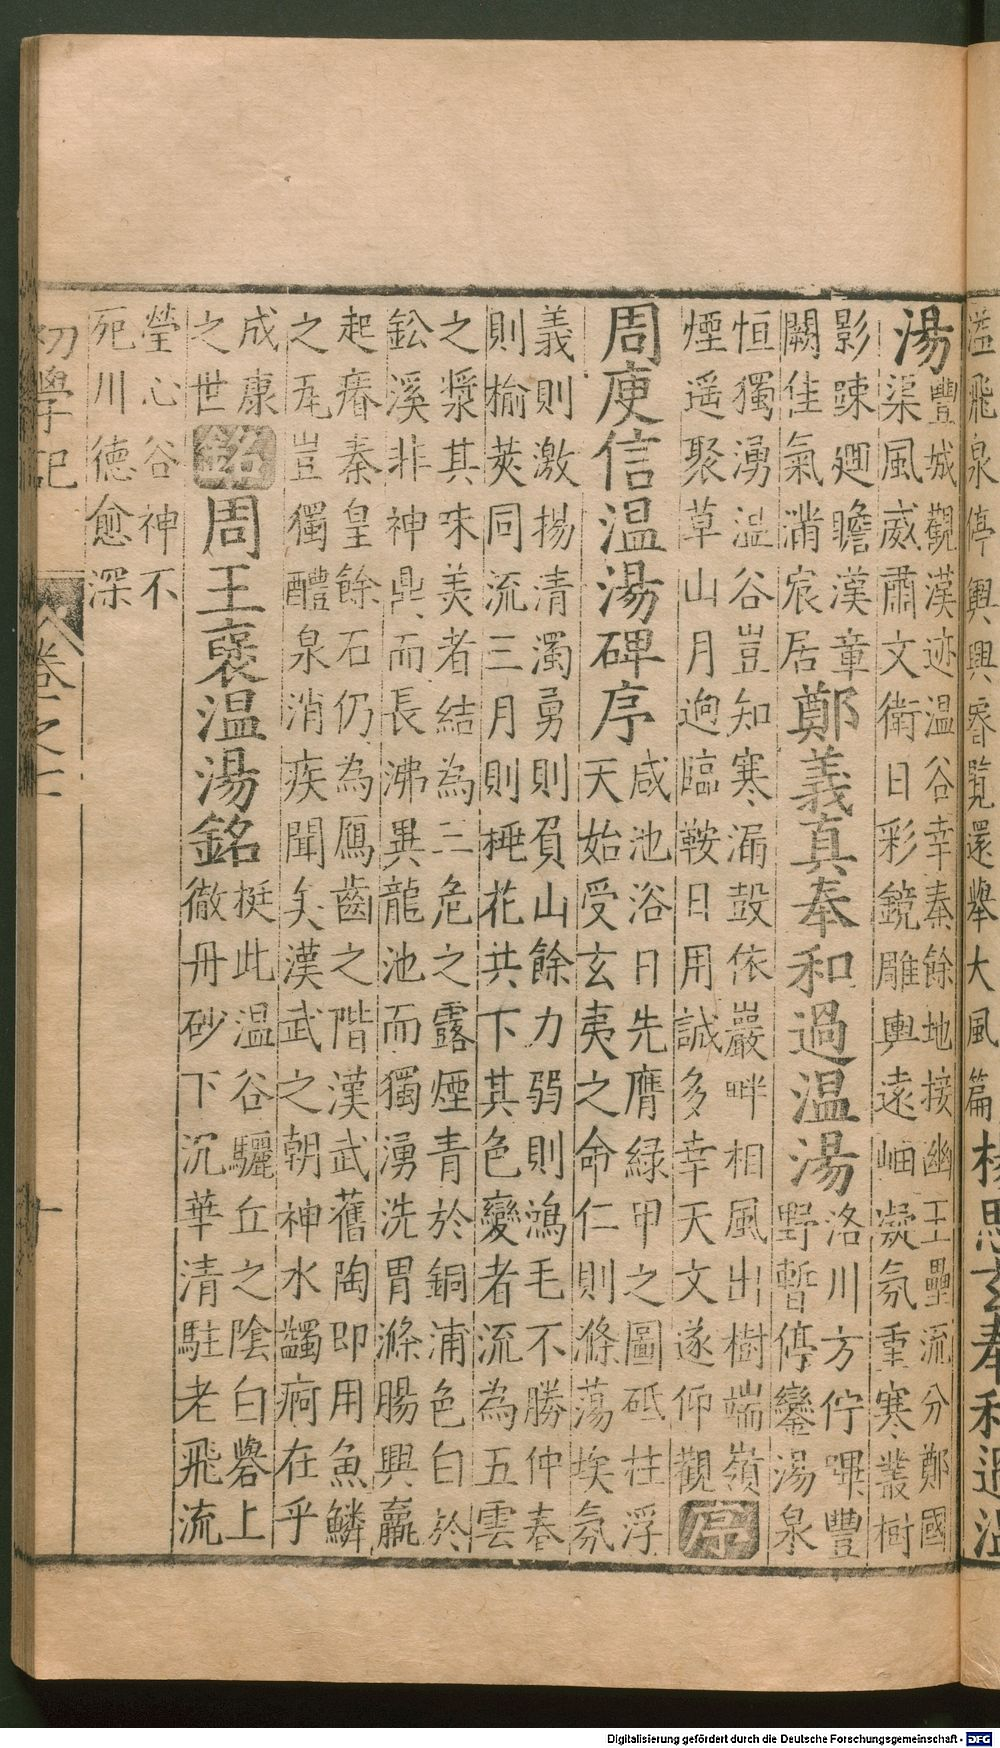 溢飛泉停輿興睿覽還舉大風篇楊思玄奉和過温
湯
豐城觀漢迹温谷幸秦餘地接幽王壘流分鄭國
渠風威肅文衛日彩鏡雕輿遠岫凝氛重寒叢樹
影踈廻瞻漢章
闕佳氣滿宸居
鄭義真奉和過温湯
洛川方佇蹕豐
野暫停鑾湯泉
恒獨湧温谷豈知寒漏鼓依巖畔相風出樹端嶺
煙遥聚草山月逈臨鞍日用誠多幸天文遂仰觀
序
周庾信温湯碑序
咸池浴日先膺緑甲之圖砥柱浮
天始受玄夷之命仁則滌蕩埃氛
義則激揚清濁勇則負山餘力弱則鴻毛不勝仲春
則榆莢同流三月則桃花共下其色變者流為五雲
之漿其味美者結為三危之露煙青於銅浦色白於
鈆溪非神鼎而長沸異龍池而獨湧洗胃滌腸興羸
起瘠秦皇餘石仍為鴈齒之階漢武舊陶即用魚鱗
之瓦豈獨醴泉消疾聞矣漢武之朝神水蠲痾在乎
成康
之世
銘
周王襃温湯銘
挺此温谷驪丘之陰白礜上
徹丹砂下沉華清駐老飛流
瑩心谷神不
死川德愈深
初學記
卷之七
十
Digitalisierung gefördert durch die Deutsche Forschungsgemeinschaft - DFG